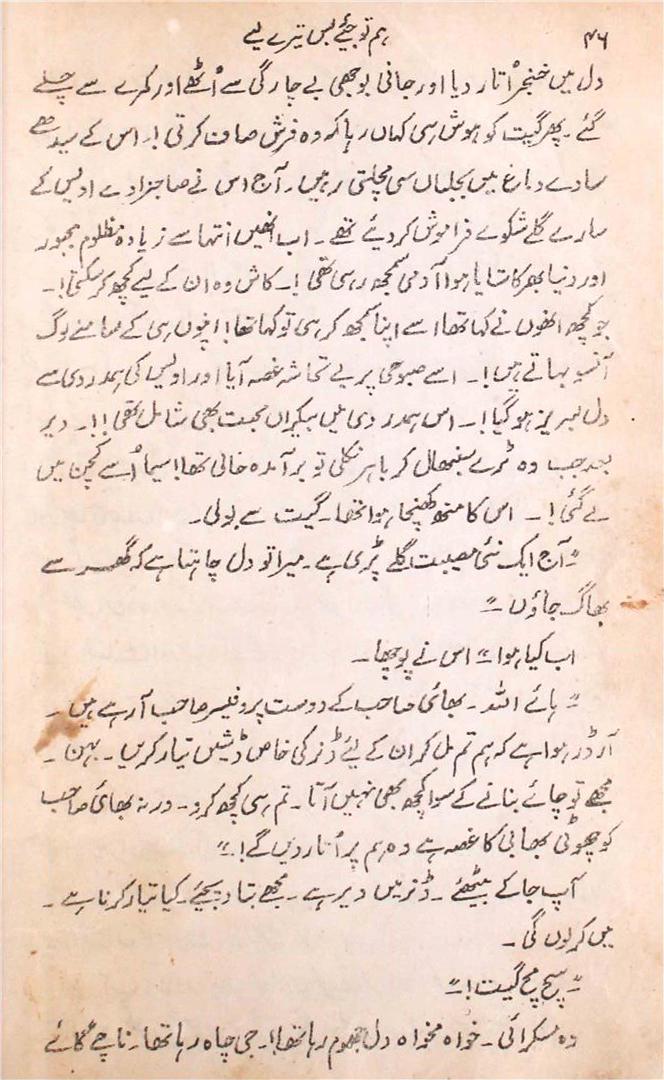 ۴۶
ہم تو جئے بس تیرے لیے
دل میں خنجر اُتار دیا اور جانی بوجھی بے چارگی سے اُٹھے اور کمرے سے چلے
گئے۔ پھر گیت کو ہوش ہی کہاں رہا کہ وہ فرش صاف کرتی!۔ اس کے سیدھے
سادے دماغ میں بجلیاں سی مچلتی رہیں۔ آج اس نے صاحبزادے اویس کے
سارے گلے شکوے فراموش کر دیئے تھے۔ اب انھیں انتہا سے زیادہ مظلوم مجبور
اور دنیا بھر کا ستایا ہوا آدمی سمجھ رہی تھی!۔ کاش وہ ان کے لیے کچھ کر سکتی!۔
جو کچھ انھوں نے کہا تھا اسے اپنا سمجھ کر ہی تو کہا تھا! اپنوں ہی کے سامنے لوگ
آنسو بہاتے ہیں!۔ اسے صبوحی پر بے تحاشہ غصہ آیا اور اویس کی ہمدردی سے
دل لبریز ہو گیا!۔ اس ہمدردی میں بیکراں محبت بھی شامل تھی!!۔ دیر
بعد جب وہ ٹرے سنبھال کر باہر نکلی تو برآمدہ خالی تھا! سیما اُسے کچن میں
لے گئی!۔ اس کا منھ کھنچا ہوا تھا۔ گیت سے بولی۔
"آج ایک نئی مصیبت گلے پڑی ہے۔ میرا تو دل چاہتا ہے کہ گھر سے
بھاگ جاؤں"
اب کیا ہوا" اس نے پوچھا۔
"ہائے اللہ۔ بھائی صاحب کے دوست پروفیسر صاحب آ رہے ہیں۔
آرڈر ہوا ہے کہ ہم تم مل کر ان کے لئے ڈنر کی خاص ڈشیں تیار کریں۔ بہن۔
مجھے تو چائے بنانے کے سوا کچھ بھی نہیں آتا۔ تم ہی کچھ کرو۔ ورنہ بھائی صاحب
کو چھوٹی بھابی کا غصہ ہے وہ ہم پر اُتار دیں گے!"
آپ جا کے بیٹھئے۔ ڈنر میں دیر ہے۔ مجھے بتا دیجیئے۔ کیا تیار کرنا ہے۔
میں کر لوں گی۔
"سچ مچ گیت!"
وہ مسکرائی۔ خواہ مخواہ دل جھوم رہا تھا!۔ جی چاہ رہا تھا۔ ناچے گائے